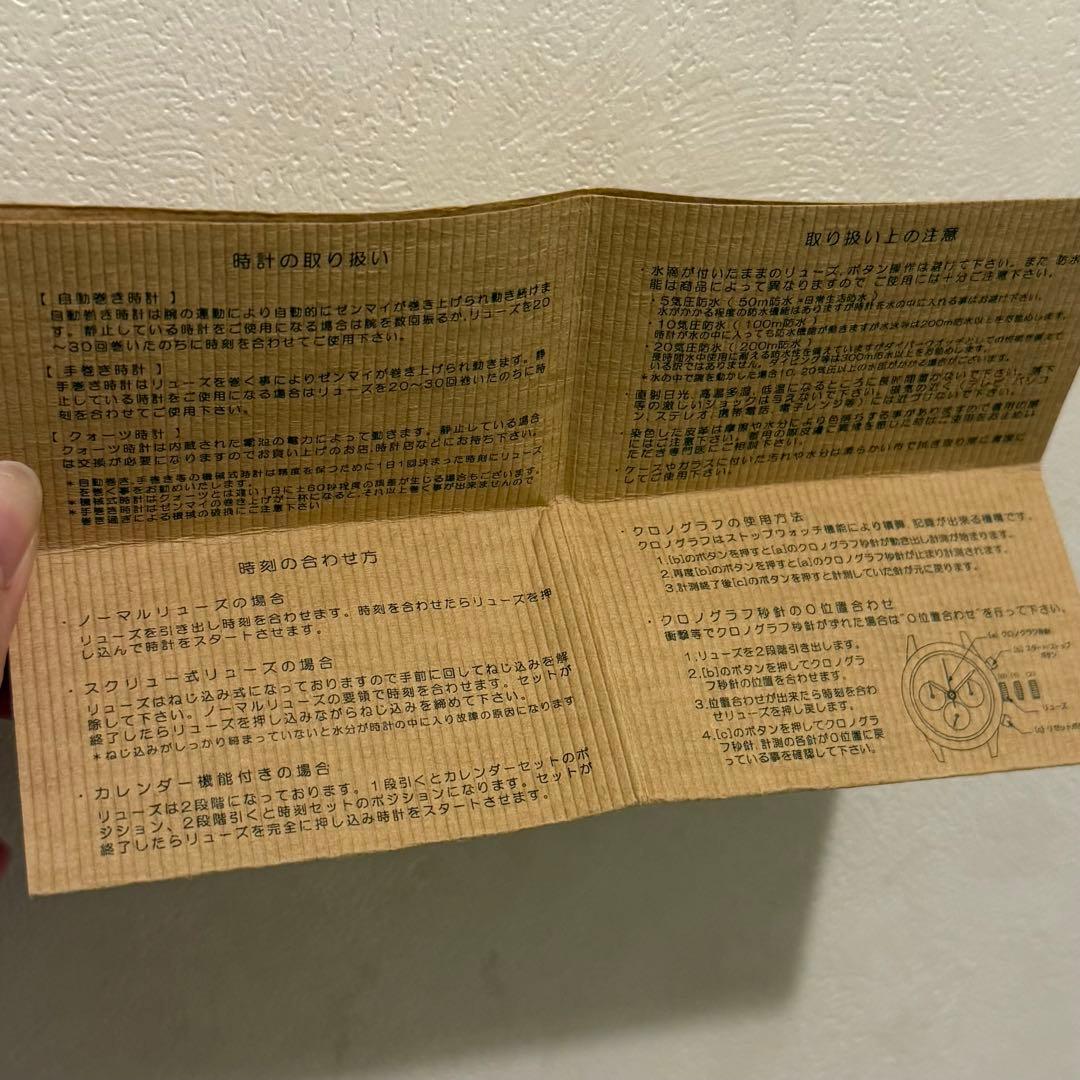 時計の取り扱い
【 自動巻き時計 】
自動巻き時計は腕の運動により自動的にゼンマイが巻き上げられ動き続けま
す。静止している時計をご使用になる場合は腕を数回振るか､リューズを20
～30回巻いたのちに時刻を合わせてご使用下さい。
【 手巻き時計 】
手巻き時計はリューズを巻く事によりゼンマイが巻き上げられ動きます。静
止している時計をご使用になる場合はリューズを20～30回巻いたのちに時
刻を合わせてご使用下さい。
【 クォーツ時計 】
クォーツ時計は内蔵された電池の電力によって動きます。静止している場合
は交換が必要になりますのでお買い上げのお店､時計店などにお持ち下さい。
＊自動巻き､手巻き等の機械式時計は精度を保つために1日1回決まった時刻にリューズ
を巻く事をお勧めいたします。
＊機械式時計はクォーツとは違い1日に±60秒程度の誤差が生じる場合もございます。
＊手巻き時計はゼンマイの巻き上げが一杯になると､それ以上巻く事が出来ませんので
巻き過ぎによる機械の破損にご注意下さい
時刻の合わせ方
・ノーマルリューズの場合
リューズを引き出し時刻を合わせます。時刻を合わせたらリューズを押
し込んで時計をスタートさせます。
・スクリュー式リューズの場合
リューズはねじ込み式になっておりますので手前に回してねじ込みを解
除して下さい。ノーマルリューズの要領で時刻を合わせます。セットが
終了したらリューズを押し込みながらねじ込みを締めて下さい。
＊ねじ込みがしっかり締まっていないと水分が時計の中に入り故障の原因になります
・カレンダー機能付きの場合
リューズは2段階になっております。1段引くとカレンダーセットのポ
ジション、2段階引くと時刻セットのポジションになります。セットが
終了したらリューズを完全に押し込み時計をスタートさせます。
取り扱い上の注意
・水滴が付いたままのリューズ､ボタン操作は避けて下さい。また 防水
能は商品によって異なりますので ご使用には十分ご注意下さい。
・5気圧防水（ 50m防水 ＊日常生活防水 ）
水がかかる程度の防水機能はありますが時計を水の中に入れる事はお避け下さい。
・10気圧防水（ 100m防水 ）
時計が水の中に入っても防水機能が働きますが水泳等は200m防水以上をお勧めします。
・20気圧防水（ 200m防水 ）
長時間水中使用に耐える防水性を備えていますがダイバーウォッチとしての性能を備えて
いる訳ではありません。ダイビング等は300m防水以上をお勧めします。
＊水の中で腕を動かした場合10､20気圧以上の水圧がかかる場合がございます。
・直射日光､高温多湿､低温になるところに長時間置かないで下さい。落下
等の激しいショックは与えないで下さい。磁気の近く(テレビ､パソコ
ン､ステレオ､携帯電話､電子レンジ等)には近づけないで下さい。
・染色した皮革は摩擦や水分により色落ちする事がありますので着用の際
にはご注意下さい。着用の際皮膚に異常を感じた時はご使用をお止めい
ただき専門医にご相談下さい。
・ケースやガラスに付いた汚れや水分は柔らかい布で拭き取り常に清潔に
してご使用下さい。
・クロノグラフの使用方法
クロノグラフはストップウォッチ機能により積算､記録が出来る機構です。
1.[b]のボタンを押すと[a]のクロノグラフ秒針が動き出し計測が始まります。
2.再度[b]のボタンを押すと[a]のクロノグラフ秒針が止まり計測されます。
3.計測終了後[c]のボタンを押すと計測していた針が元に戻ります。
・クロノグラフ秒針の0位置合わせ
衝撃等でクロノグラフ秒針がずれた場合は"0位置合わせ"を行って下さい。
1.リューズを2段階引き出します。
2.[b]のボタンを押してクロノグラ
フ秒針の位置を合わせます。
3.位置合わせが出来たら時刻を合わ
せリューズを押し戻します。
4.[c]のボタンを押してクロノグラ
フ秒針､計測の各針が0位置に戻
っている事を確認して下さい。
[a] クロノグラフ秒針
[b] スタート/ストップ
ボタン
(0) (1) (2)
リューズ
[c] リセットボ